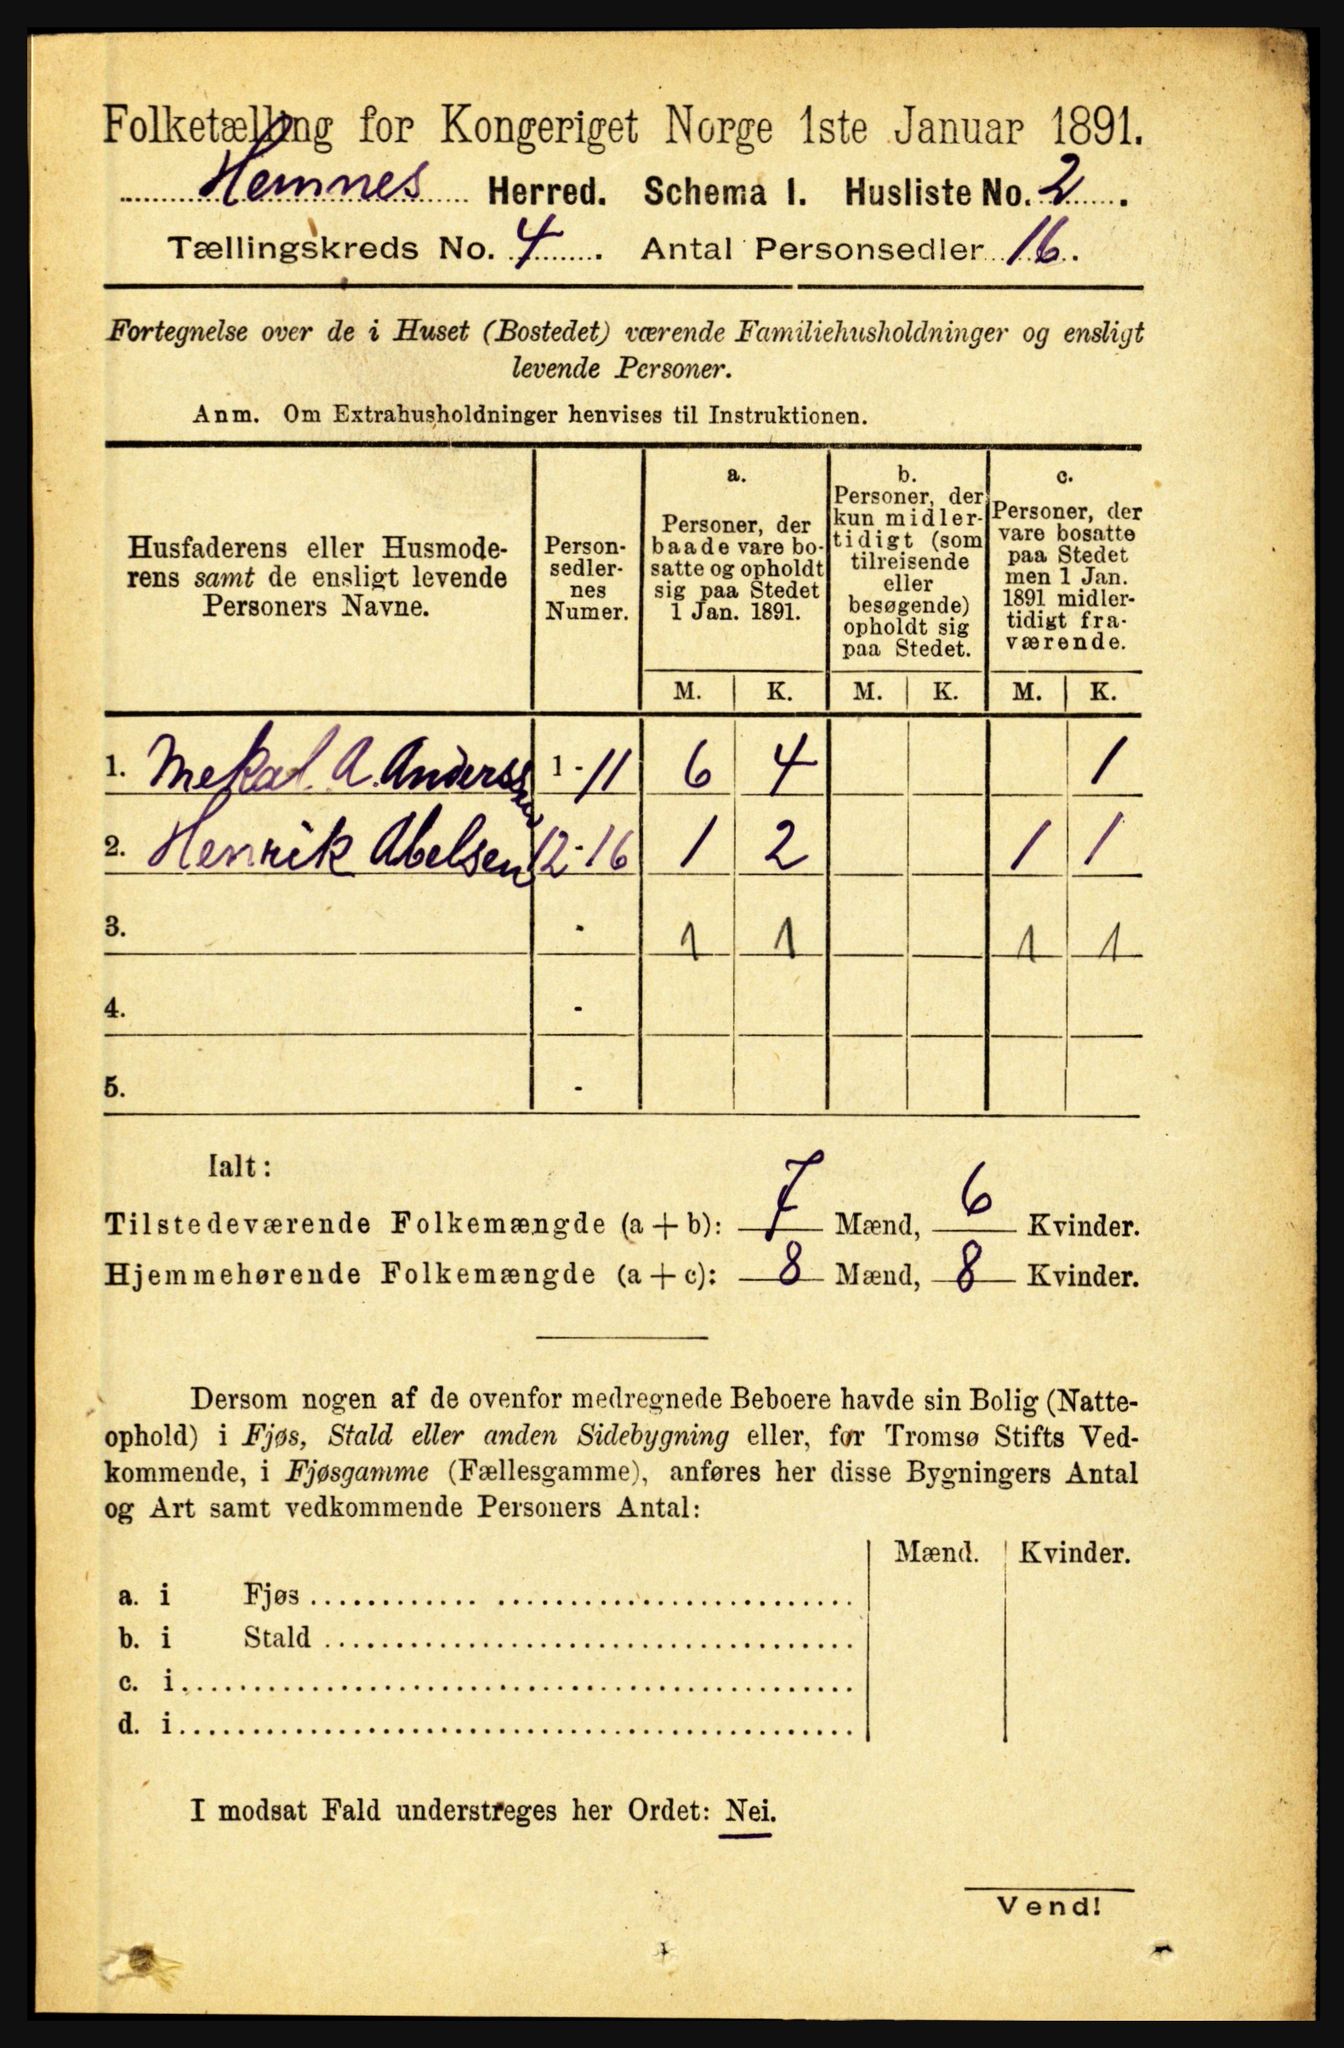 Folketælling for Kongeriget Norge 1ste Januar 1891.
Hemnes Herred. Schema I. Husliste No. 2.
Tællingskreds No. 4. Antal Personsedler 16.
Fortegnelse over de i Huset (Bostedet) værende Familiehusholdninger og ensligt
levende Personer.
Anm. Om Extrahusholdninger henvises til Instruktionen.
Husfaderens eller Husmode-
rens samt de ensligt levende
Personers Navne.
Person-
sedler-
nes
Numer.
a.
Personer, der
baade vare bo-
satte og opholdt
sig paa Stedet
1 Jan. 1891.
b.
Personer, der
kun midler-
tidigt (som
tilreisende
eller
besøgende)
opholdt sig
paa Stedet.
c.
Personer, der
vare bosatte
paa Stedet
men 1 Jan.
1891 midler-
tidigt fra-
værende.
M. K. M. K. M. K.
1. Mekal A. Anderssen 1 - 11 6 4 1
2. Henrik Abelsen 12 - 16 1 2 1 1
3. - 1 1 1 1
4. -
5. -
Ialt:
Tilstedeværende Folkemængde (a + b): 7 Mænd, 6 Kvinder.
Hjemmehørende Folkemængde (a + c): 8 Mænd, 8 Kvinder.
Dersom nogen af de ovenfor medregnede Beboere havde sin Bolig (Natte-
ophold) i Fjøs, Stald eller anden Sidebygning eller, for Tromsø Stifts Ved-
kommende, i Fjøsgamme (Fællesgamme), anføres her disse Bygningers Antal
og Art samt vedkommende Personers Antal:
Mænd. Kvinder.
a. i Fjøs
b. i Stald
c. i
d. i
I modsat Fald understreges her Ordet: Nei.
Vend!